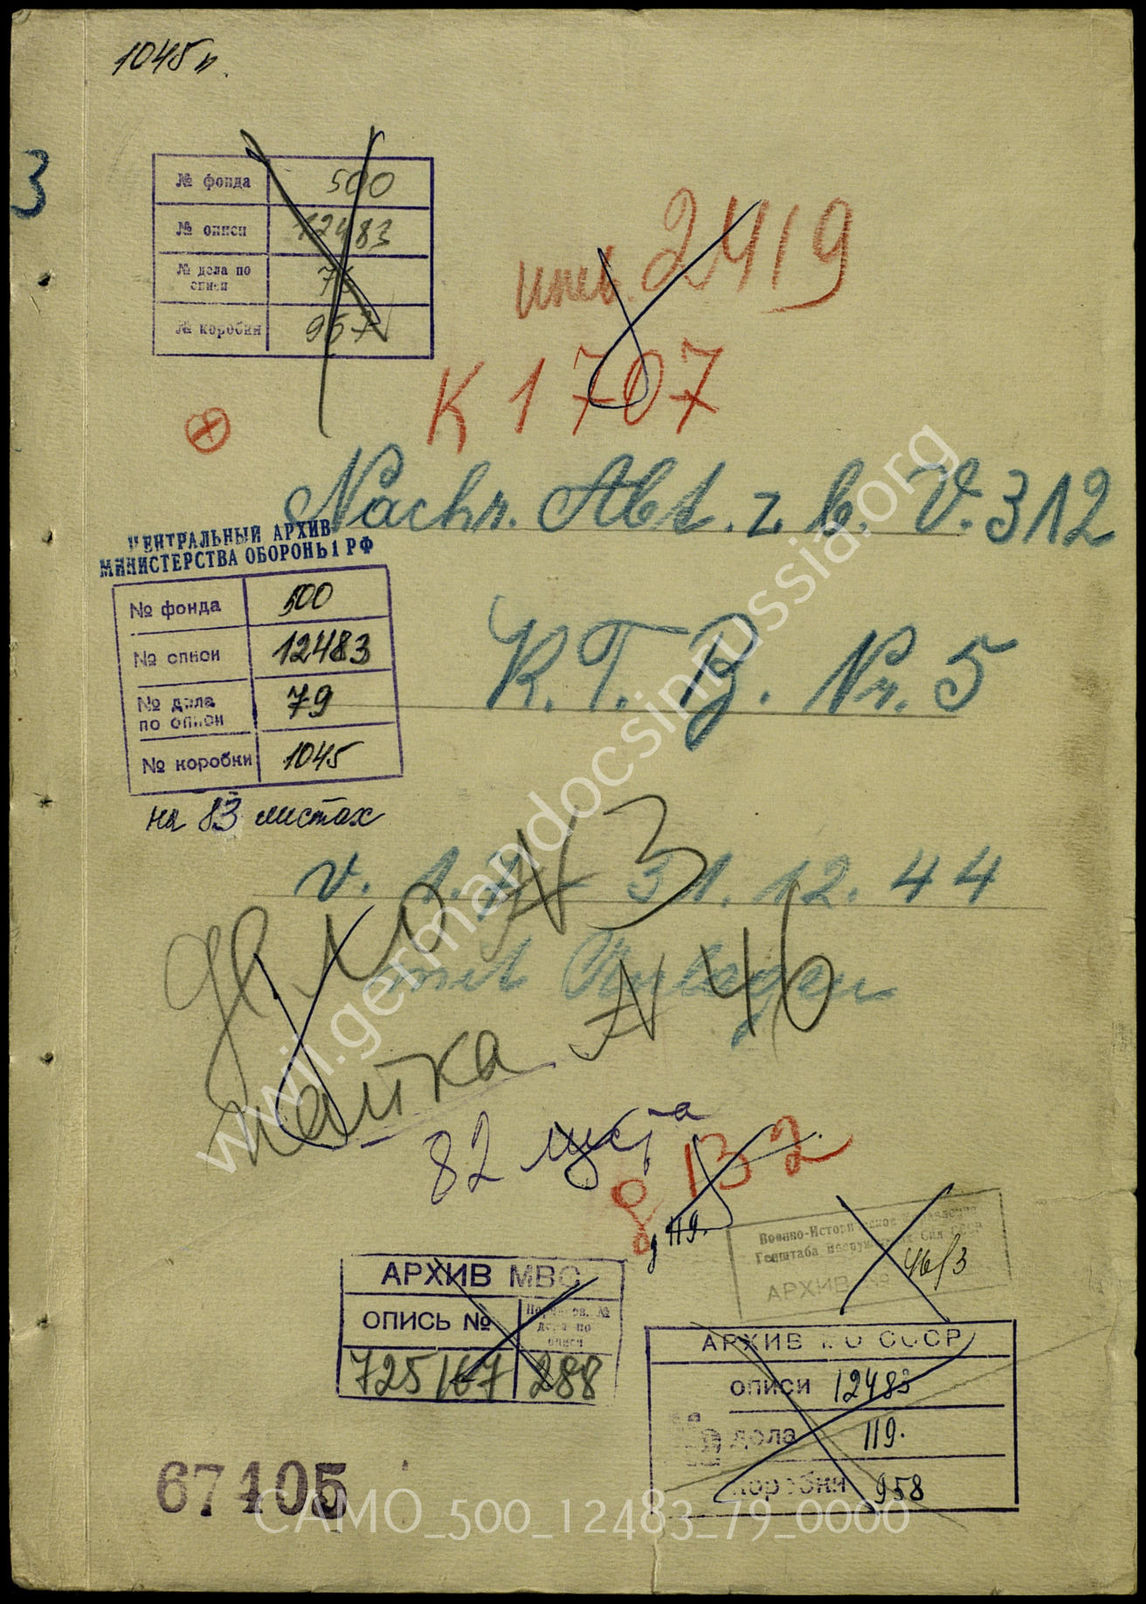 1045 п.
3
№ фонда 500
№ описи 12483
№ дела по описи 76
№ коробки 957
инв. 2419
К 1707
Nachr. Abt. z. b. V. 312
ЦЕНТРАЛЬНЫЙ АРХИВ
МИНИСТЕРСТВА ОБОРОНЫ РФ
№ фонда 500
№ описи 12483
№ дела по описи 79
№ коробки 1045
на 83 листах
K. T. B. Nr. 5
v. 1.7. - 31.12.44
mit Anlagen
дело N 3
папка N 46
82 листа
8 132
д 119.
Военно-Историческое Управление
Генштаба вооруженных сил СССР
АРХИВ № 46/3
АРХИВ МВС
ОПИСЬ №
дела по описи
725/167 288
АРХИВ МО СССР
описи 12483
дела 119.
коробки 958
67105
wwii.germandocsinrussia.org
CAMO_500_12483_79_0000